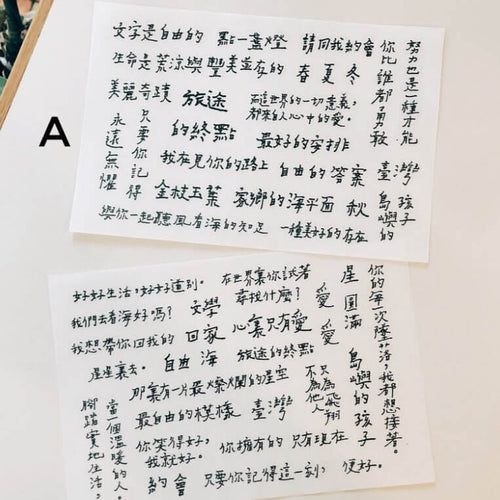 A
文字是自由的 點一盞燈 請同我約會
生命是荒涼與豐美並存的 春夏冬
美麗奇蹟 旅途
而這世界的一切意義，
都來自人心中的愛。
你比誰都勇敢
努力也是一種才能
永遠無懼
只要你記得
的終點 最好的安排
我在見你的路上 自由的答案
金枝玉葉 家鄉的海平面 秋
臺灣
島嶼的孩子
與你一起聽風看海的知足 一種美好的存在
好好生活，好好道別。
在世界裏你試著
尋找什麼？
我們去看海好嗎？ 文學
我想帶你回我的 回家 心裏只有愛
愛
星圓滿
你的每一次墜落，我都想接著。
星星裏去。 自由 海 旅途的終點
那裏有一片最燦爛的星空
不為他人
只為飛翔
島嶼的孩子
最自由的模樣 臺灣
你笑得好，
我就好。
你擁有的 只有現在
當一個溫暖的人。
腳踏實地生活，
約會 只要你記得這一刻，便好。